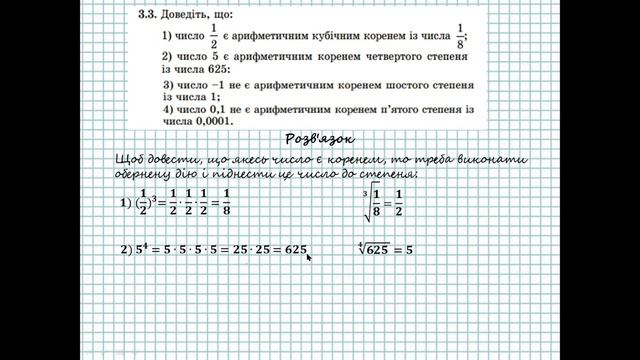 3.3. Доведіть, що:
1) число 1/2 є арифметичним кубічним коренем із числа 1/8;
2) число 5 є арифметичним коренем четвертого степеня
із числа 625:
3) число –1 не є арифметичним коренем шостого степеня
із числа 1;
4) число 0,1 не є арифметичним коренем п'ятого степеня із
числа 0,0001.
Розв'язок
Щоб довести, що якесь число є коренем, то треба виконати
обернену дію і піднести це число до степеня:
1) (1/2)³ = 1/2 · 1/2 · 1/2 = 1/8 ∛(1/8) = 1/2
2) 5⁴ = 5 · 5 · 5 · 5 = 25 · 25 = 625 ∜625 = 5